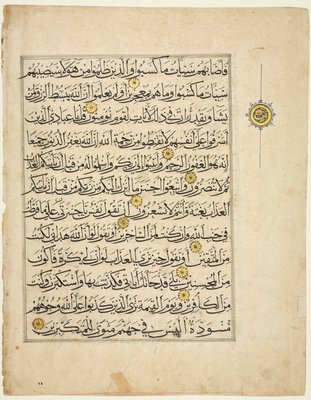 فاصابهم سيات ما كسبوا والذين ظلموا من هولا سيصيبهم
سيات ما كسبوا وما هم بمعجزين اولم يعلموا ان الله يبسط الرزق لمن
يشا ويقدر ان في ذلك لايات لقوم يومنون قل يا عبادي الذين
اسرفوا على انفسهم لا تقنطوا من رحمة الله ان الله يغفر الذنوب جميعا
انه هو الغفور الرحيم وانيبوا الى ربكم واسلموا له من قبل ان ياتيكم العذاب
ثم لا تنصرون واتبعوا احسن ما انزل اليكم من ربكم من قبل ان ياتيكم
العذاب بغتة وانتم لا تشعرون ان تقول نفس يا حسرتى على ما فرطت
في جنب الله وان كنت لمن الساخرين او تقول لو ان الله هداني لكنت
من المتقين او تقول حين ترى العذاب لو ان لي كرة فاكون
من المحسنين بلى قد جاتك اياتي فكذبت بها واستكبرت وكنت
من الكافرين ويوم القيمة ترى الذين كذبوا على الله وجوههم
مسودة اليس في جهنم مثوى للمتكبرين